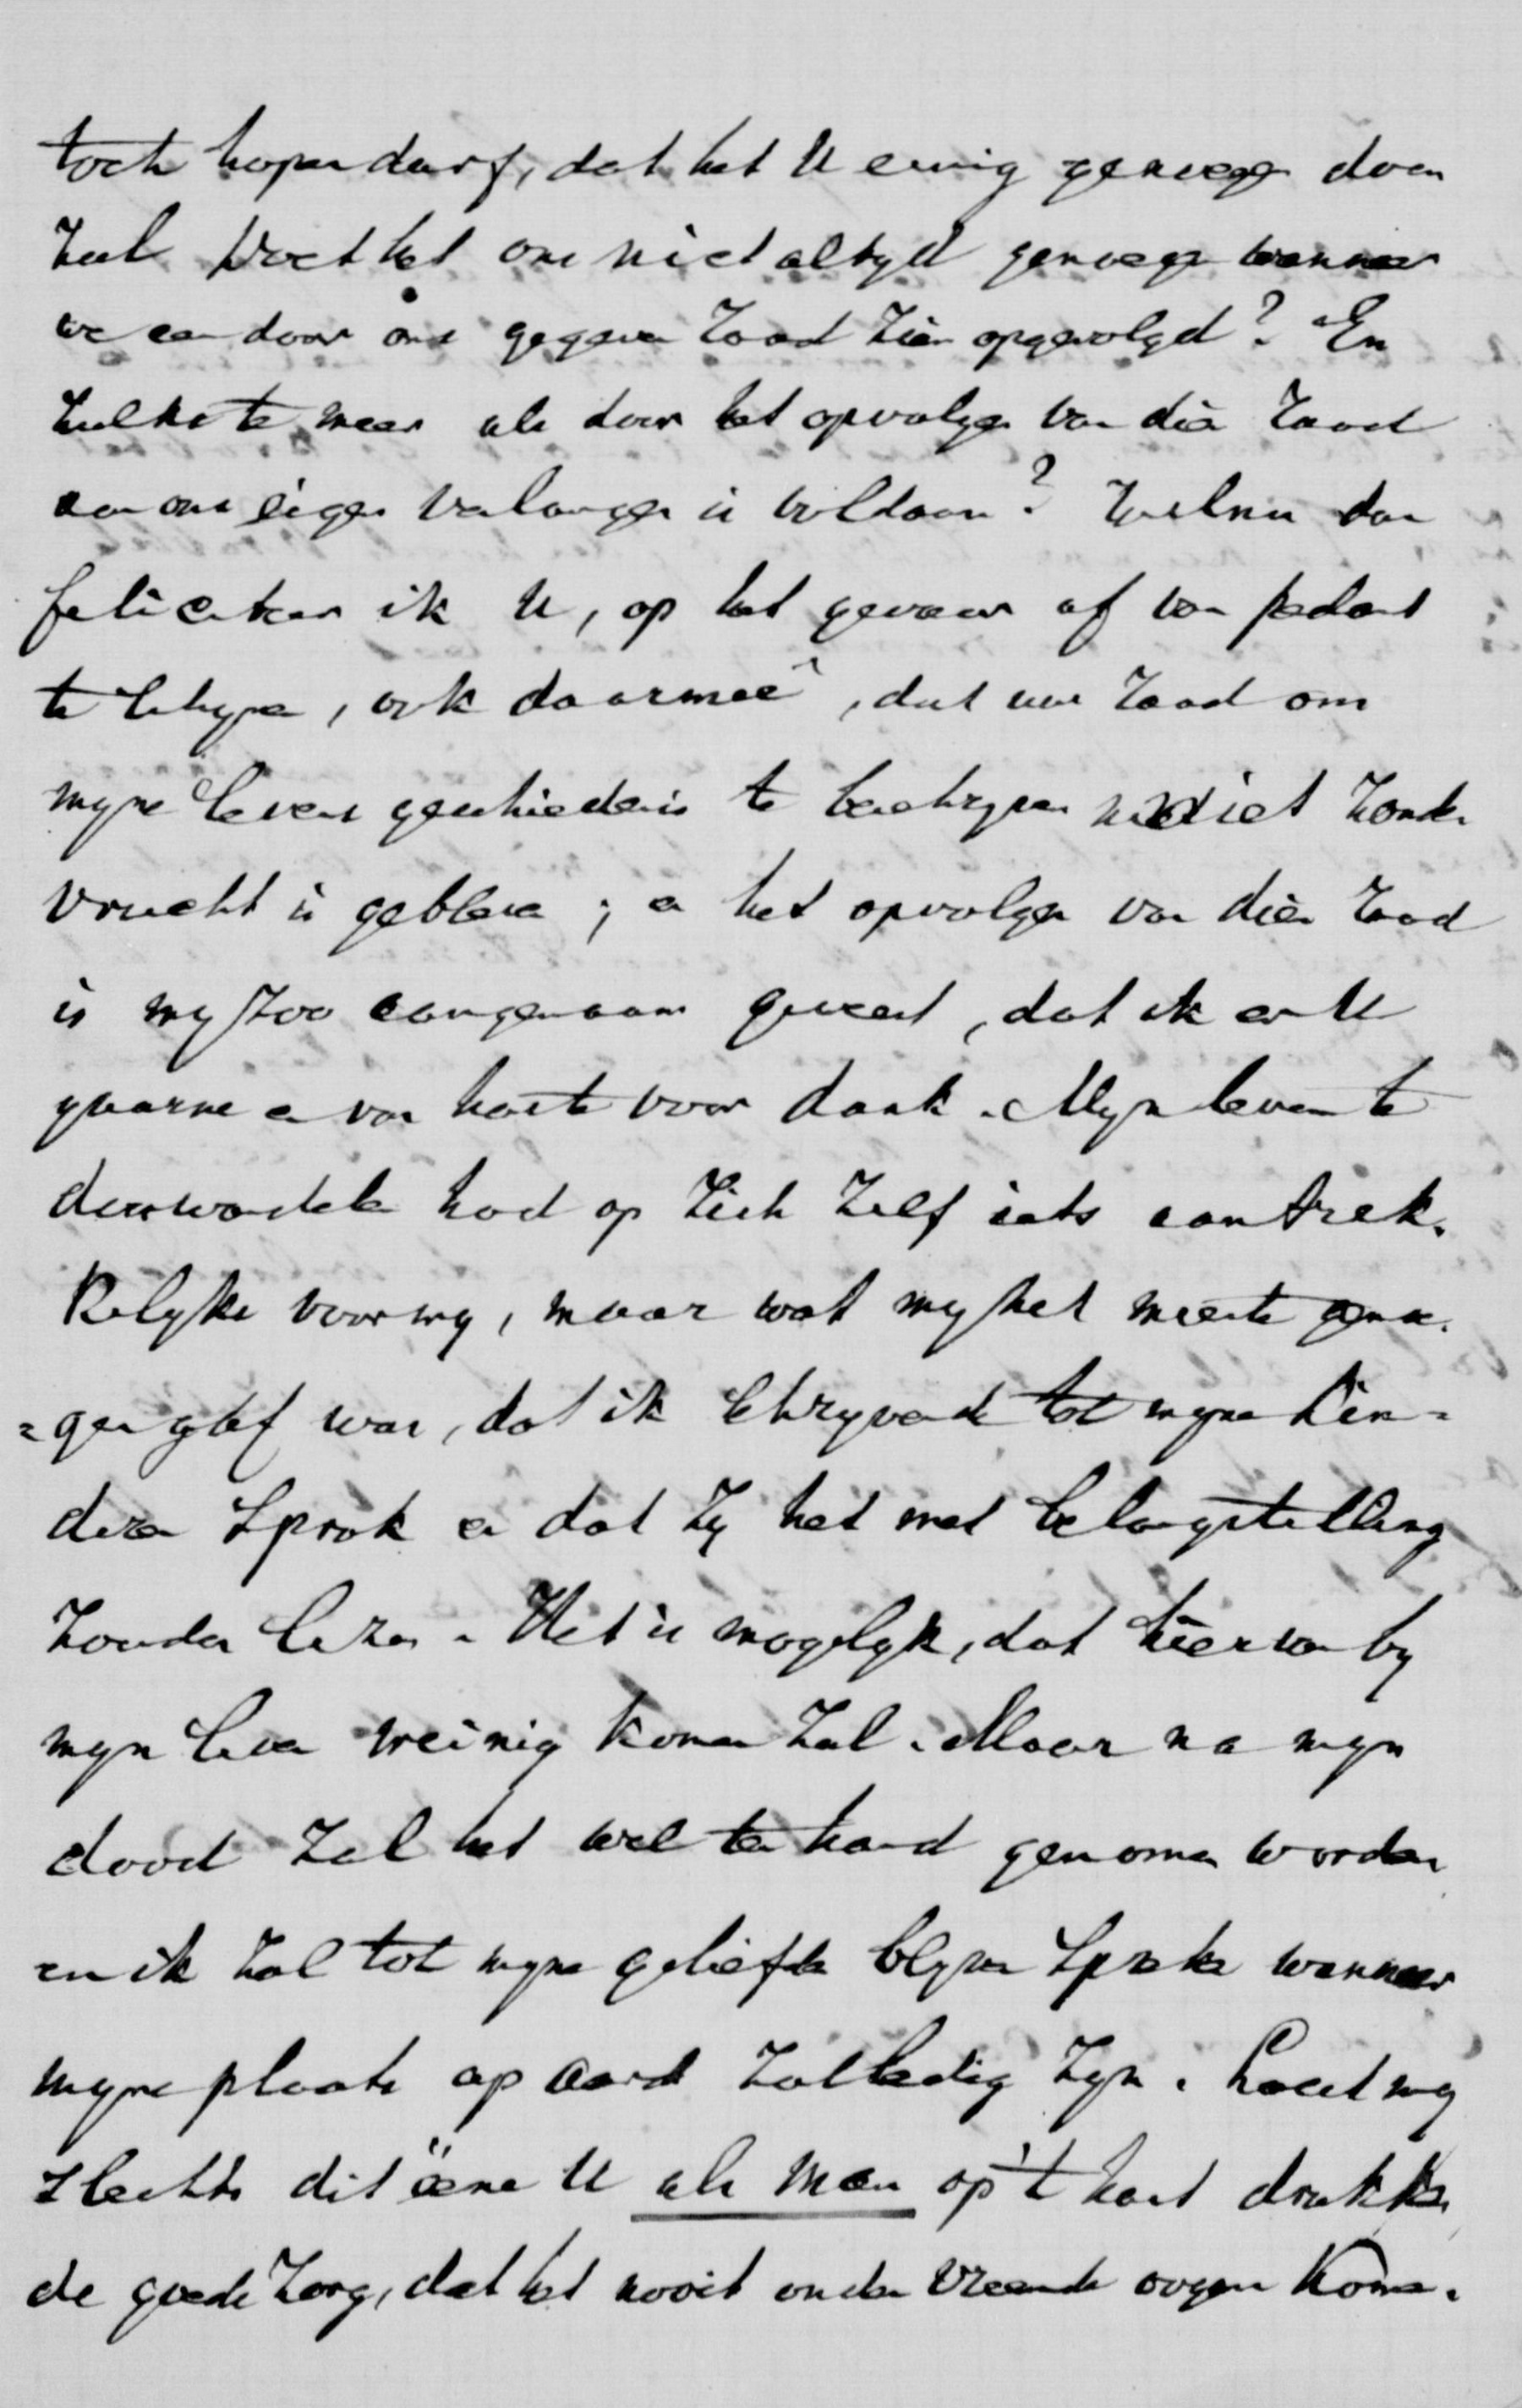 toch hopen durf, dat het U eenig genoegen doen
zal. Doet het ons niet altyd genoegen wanneer
we een door ons gegeven raad zien opgevolgd? En
zulks te meer als door het opvolgen van dien raad
aan ons eigen verlangen is voldaan? Welnu dan
feliciteer ik U, op het gevaar af van pedant
te schynen, ook daarmeê, dat uw raad om
myne levensgeschiedenis te beschryven niet zonder
vrucht is gebleven; en het opvolgen van dien raad
is my zoo aangenaam geweest, dat ik er U
gaarne en van harte voor dank. Myn leven te
doorwandelen had op zich zelf iets aantrek-
kelyks voor my, maar wat my het meeste genoe-
=gen gaf was, dat ik schryvende tot myne kin=
deren sprak en dat zy het met belangstelling
zouden lezen. Het is mogelyk, dat hiervan by
myn leven weinig komen zal. Maar na myn
dood zal het wel ter hand genomen worden
en ik zal tot myne geliefden blyven spreken wanneer
myne plaats op aard zal ledig zyn. Laat my
slechts dit ééne U als man op 't hart drukken
de goede zorg, dat het nooit onder vreemde oogen kome.